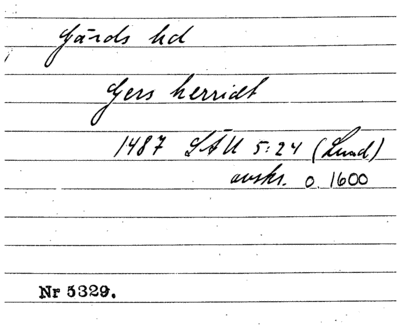 Gärds hd
Gers herridt
1487 SÄU 5:24 (Lund)
avskr. o. 1600
Nr 5329.